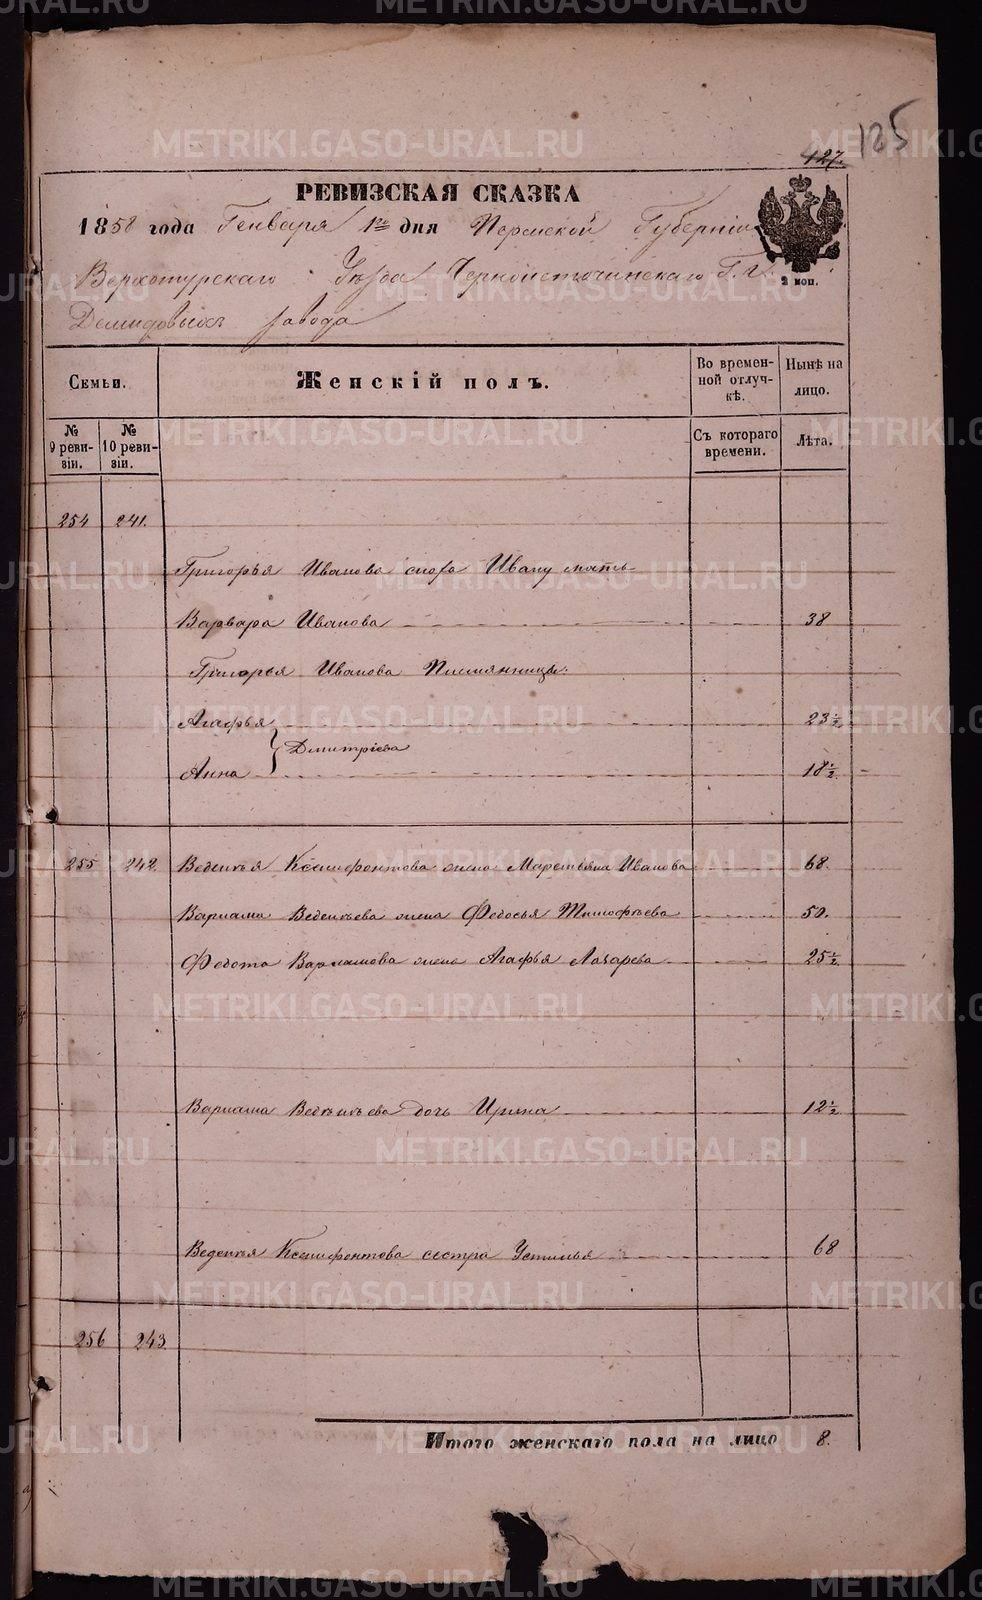 125
127.
РЕВИЗСКАЯ СКАЗКА
1858 года Генваря 1го дня Пермской Губерніи
2 коп.
Верхотурскаго Уѣзда Черноисточинскаго Г. г.
Демидовыхъ завода
Семьи.
Женскій полъ.
Во времен-
ной отлуч-
кѣ.
Нынѣ на
лицо.
№
9 реви-
зіи.
№
10 реви-
зіи.
Съ котораго
времени.
Лѣта.
254 241.
Григорья Иванова Ивану мать
Варвара Иванова 38
Григорья Иванова Племянницы:
Агафья 23½
Дмитріева
Анна 18½
255 242. Веденѣя Ксенифонтова жена Маремьяна Иванова 68.
Варлама Веденѣева жена Федосья Тимофѣева 50.
Федота Варламова жена Агафья Лазарева 25½
Варлама Веденѣева дочь Ирина 12½
Веденѣя Ксенифонтова сестра Устинья 68
256 243
Итого женскаго пола на лицо 8.
METRIKI.GASO-URAL.RU